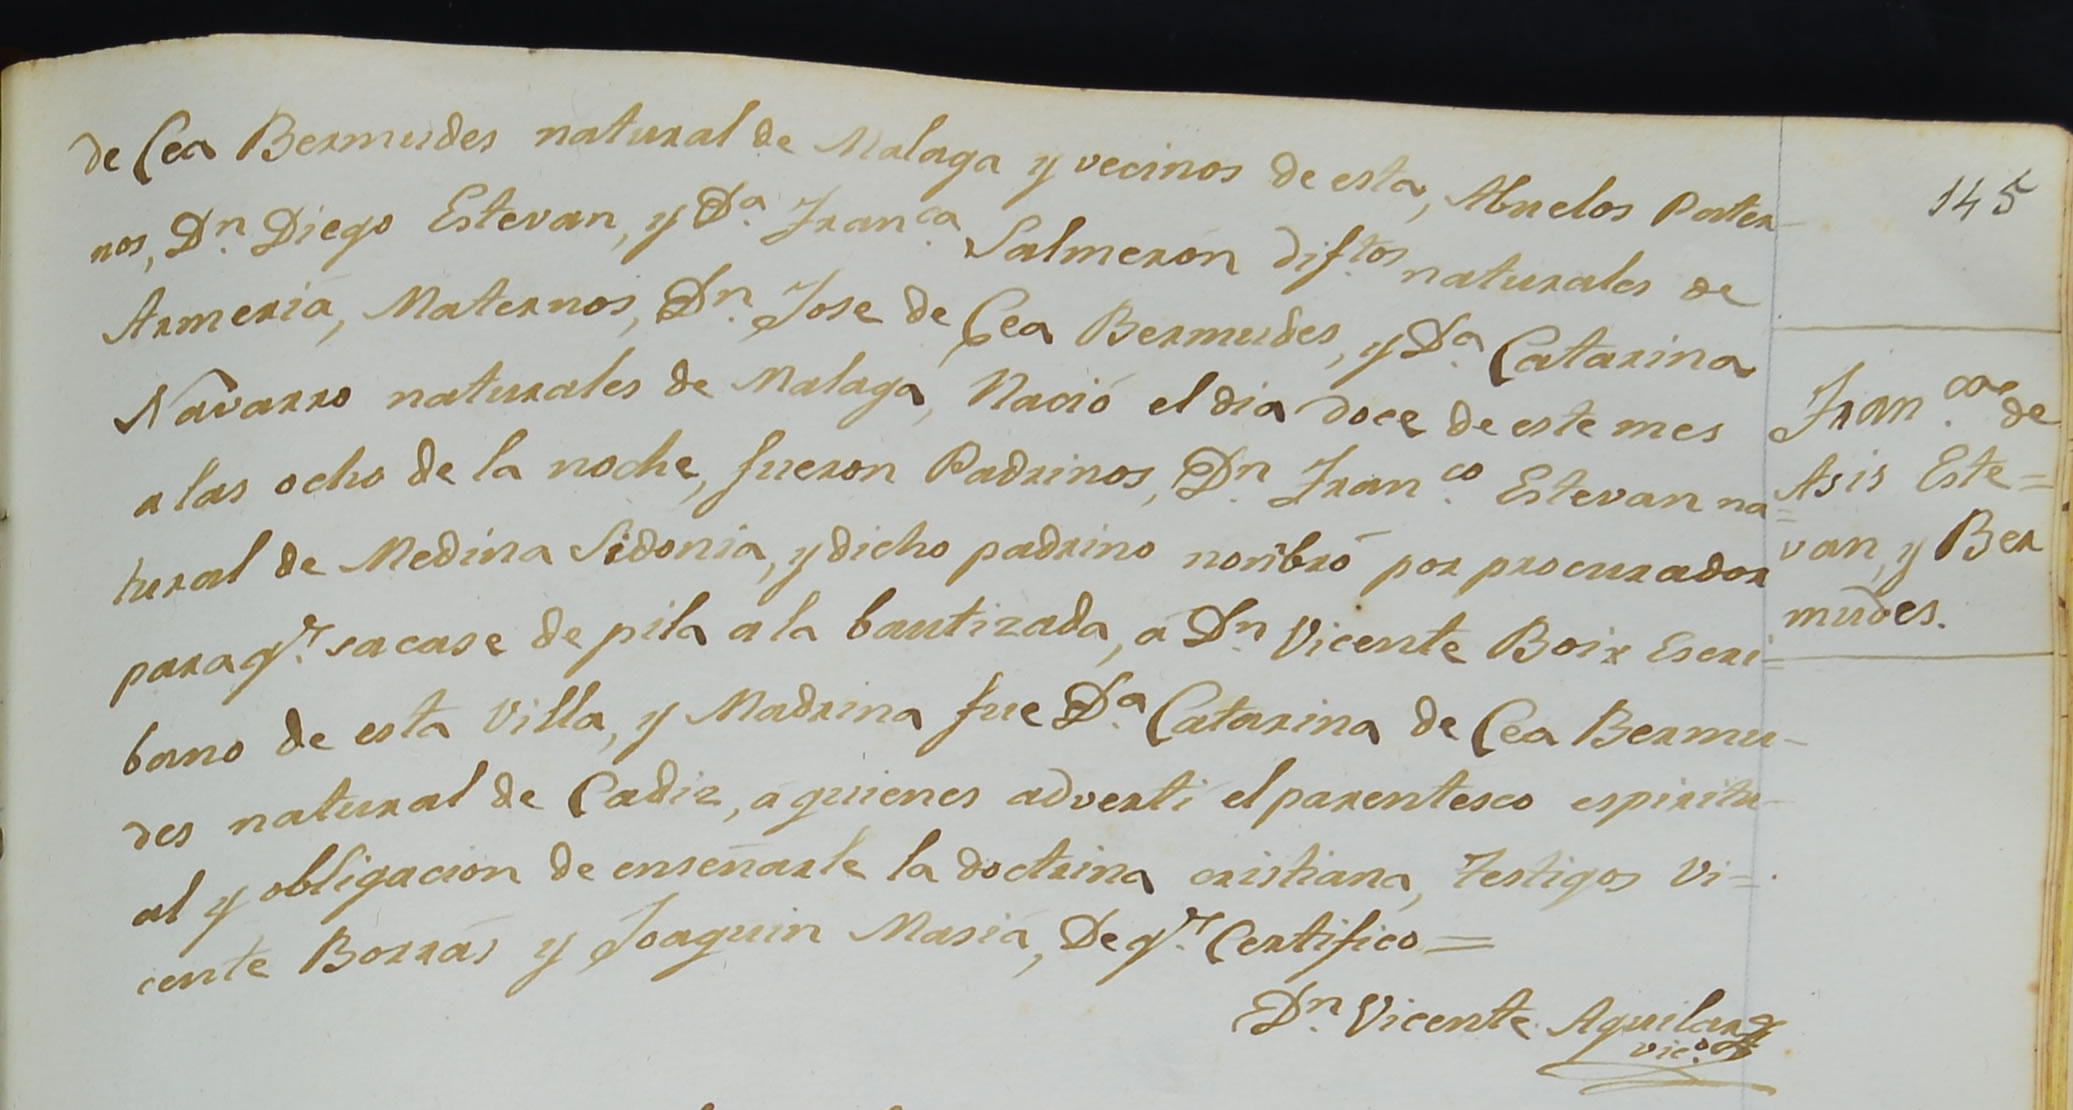 de Cea Bermudes natural de Malaga y vecinos de esta, Abuelos Pater-
nos, Dn. Diego Estevan, y Da. Franca. Salmerón diftos. naturales de
Armeria, Maternos, Dn. Jose de Cea Bermudes, y Da. Catarina
Navarro naturales de Malaga, Nació el dia doce de este mes
a las ocho de la noche, fueron Padrinos, Dn. Franco. Estevan na=
tural de Medina Sidonia, y dicho padrino nombró por procurador
para qe. sacase de pila a la bautizada, á Dn. Vicente Boix Escri=
bano de esta Villa, y Madrina fue Da. Catarina de Cea Bermu-
des natural de Cadiz, á quienes advertí el parentesco espiritu-
al y obligacion de enseñarle la doctrina cristiana, Testigos Vi=
cente Borrás y Joaquin Masiá, De qe. Certifico=
Dn. Vicente Aguilar
vico.
145
Franca. de
Asis Este=
van, y Ber
mudes.